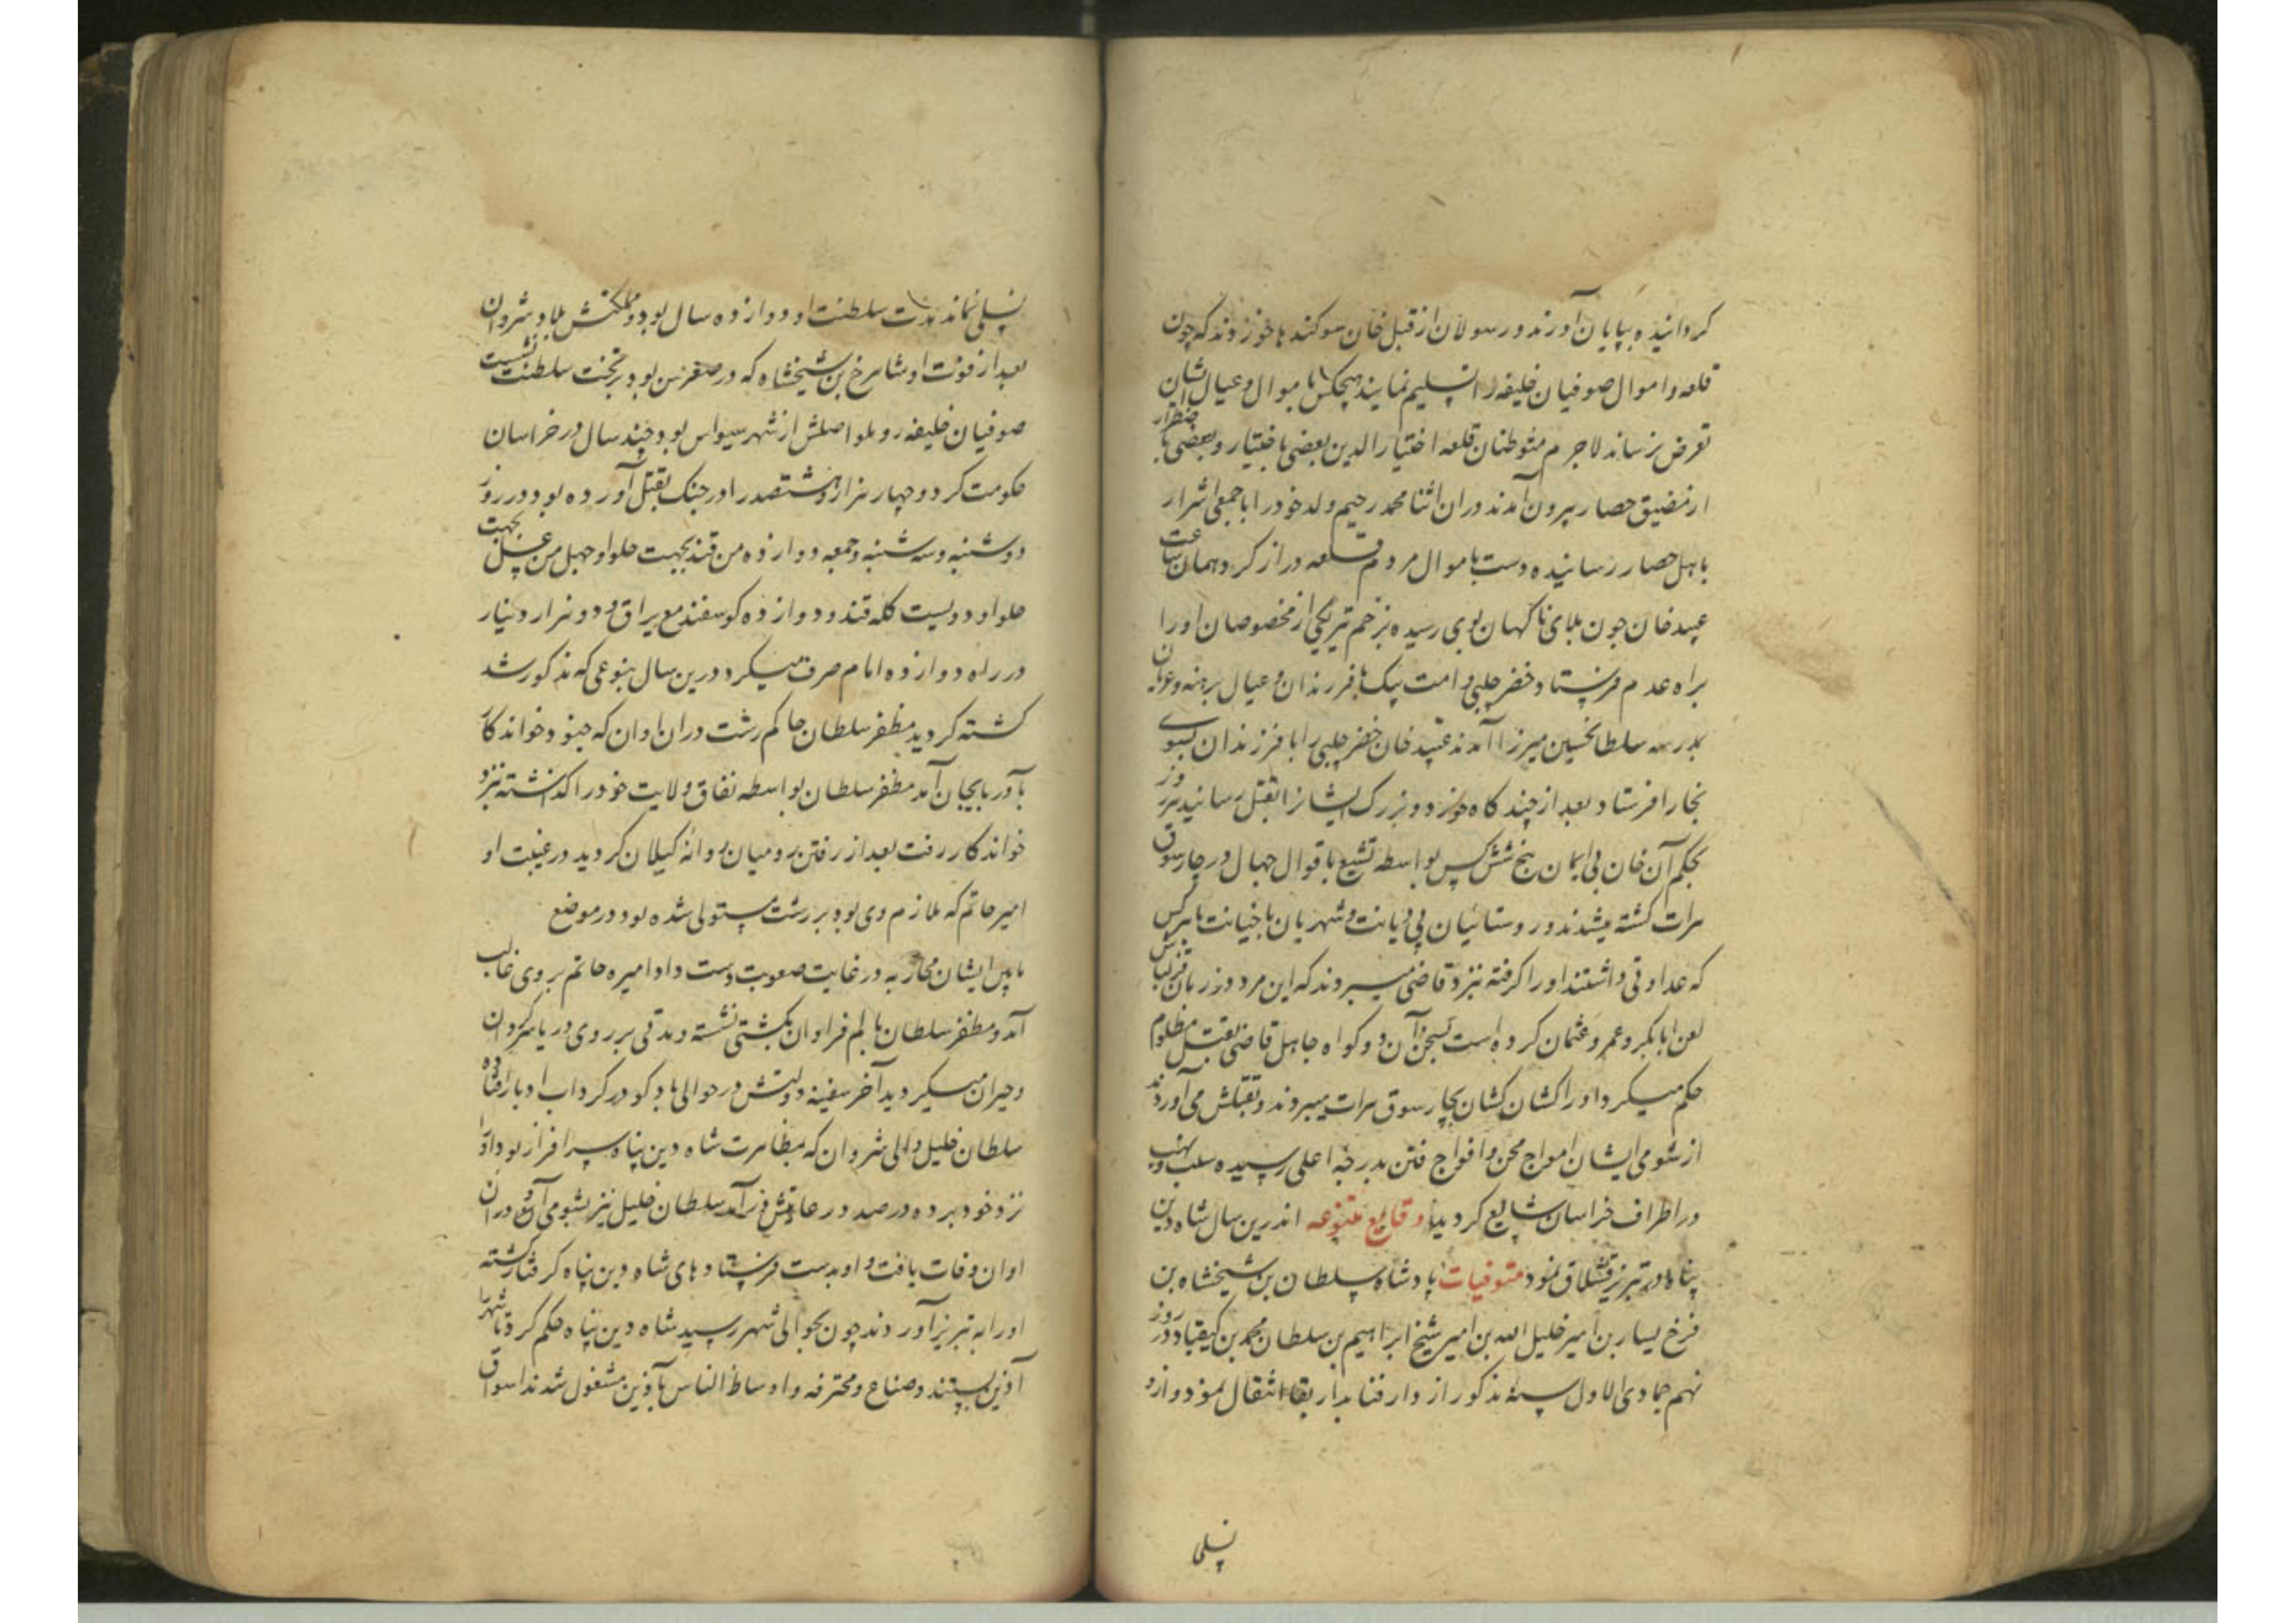 کردانیده بپایان آورند و رسولان از قبل خان سوکندها خوردند که چون
قلعه و اموال صوفیان خلیفه را تسلیم نمایند هیچکس باموال و عیال ایشان
تعرض نرساند لاجرم متوطنان قلعه اختیارالدین بعضی باختیار و بعضی باضطرار
از مضیق حصار بیرون آمدند در ان اثنا محمد رحیم ولد خود را با جمعی اشرار
باهل حصار رسانیده دست باموال مردم قلعه دراز کرد همان ساعت
عبید خان چون بلای ناکهان بوی رسیده بزخم تیر یکی از مخصوصان او را
براه عدم فرستاد خضر چلبی و امت بیک با فرزندان و عیال برهنه و عریان
بمدرسه سلطانحسین میرزا آمدند عبید خان خضر چلبی را با فرزندان بسوی
بخارا فرستاد بعد از چند کاه خورد و بزرک ایشانرا بقتل رسانید هر روز
بحکم آن خان بی ایمان پنج شش کس بواسطه تشیع باقوال جهال در چارسوق
هرات کشته میشدند و روستائیان بی دیانت و شهریان با خیانت با هرکس
که عداوتی داشتند او را کرفته نزد قاضی میبردند که این مرد در زمان قزلباش
لعن ابابکر و عمر و عثمان کرده است بسخن آن دو کواه جاهل قاضی بقتل مظلوم
حکم میکرد او را کشان کشان بچارسوق هرات میبردند و بقتلش می آوردند
از شومی ایشان امواج محن و افواج فتن بدرجه اعلی رسیده سلب و نهب
در اطراف خراسان شایع کردید وقایع متنوعه اندرین سال شاه دین
پناه در تبریز قشلاق نمود متوفیات پادشاه سلطان بن شیخشاه بن
فرخ یسار بن امیر خلیل الله بن امیر شیخ ابراهیم بن سلطان محمد بن کیقباد در روز
نهم جمادی الاول سنه مذکور از دار فنا بدار بقا انتقال نمود و ازو
نسلی
نسلی نماند مدت سلطنت او دوازده سال بود و مملکتش بلاد شروان
بعد از فوت او شاهرخ بن شیخشاه که در صغر سن بود بر تخت سلطنت نشست
صوفیان خلیفه روملو اصلش از شهر سیواس بود و چند سال در خراسان
حکومت کرد و چهار هزار و هشتصد را در جنک بقتل آورده بود و در روز
دوشنبه و سه شنبه و جمعه دوازده من قند بجهت حلوا و چهل من عسل بجهت
حلوا و دویست کله قند و دوازده کوسفند مع یراق و دو هزار دینار
در راه دوازده امام صرف میکرد درین سال بنوعی که مذکور شد
کشته کردید مظفر سلطان حاکم رشت در ان اوان که جنود خواندکار
بآذربایجان آمد مظفر سلطان بواسطه نفاق ولایت خود را کذاشته نزد
خواندکار رفت بعد از رفتن رومیان روانه کیلان کردید در غیبت او
امیر حاتم که ملازم وی بود بر رشت مستولی شده بود در موضع
مابین ایشان محاربه در غایت صعوبت دست داد امیره حاتم بر وی غالب
آمد و مظفر سلطان با الم فراوان بکشتی نشسته و مدتی بر روی دریا سرکردان
و حیران میکردید آخر سفینه دولتش در حوالی بادکو در کرداب ادبار افتاده
سلطان خلیل والی شروان که بمظاهرت شاه دین پناه سرافراز بود او را
نزد خود برده در صدد رعایتش در آمد سلطان خلیل نیز بشومی آن در ان
اوان وفات یافت و او بدست فرستادهای شاه دین پناه کرفتار کشته
او را به تبریز آوردند چون بحوالی شهر رسید شاه دین پناه حکم کرد تا شهر را
آذین بستند و صناع و محترفه و اوساط الناس بآذین مشغول شدند اسواق